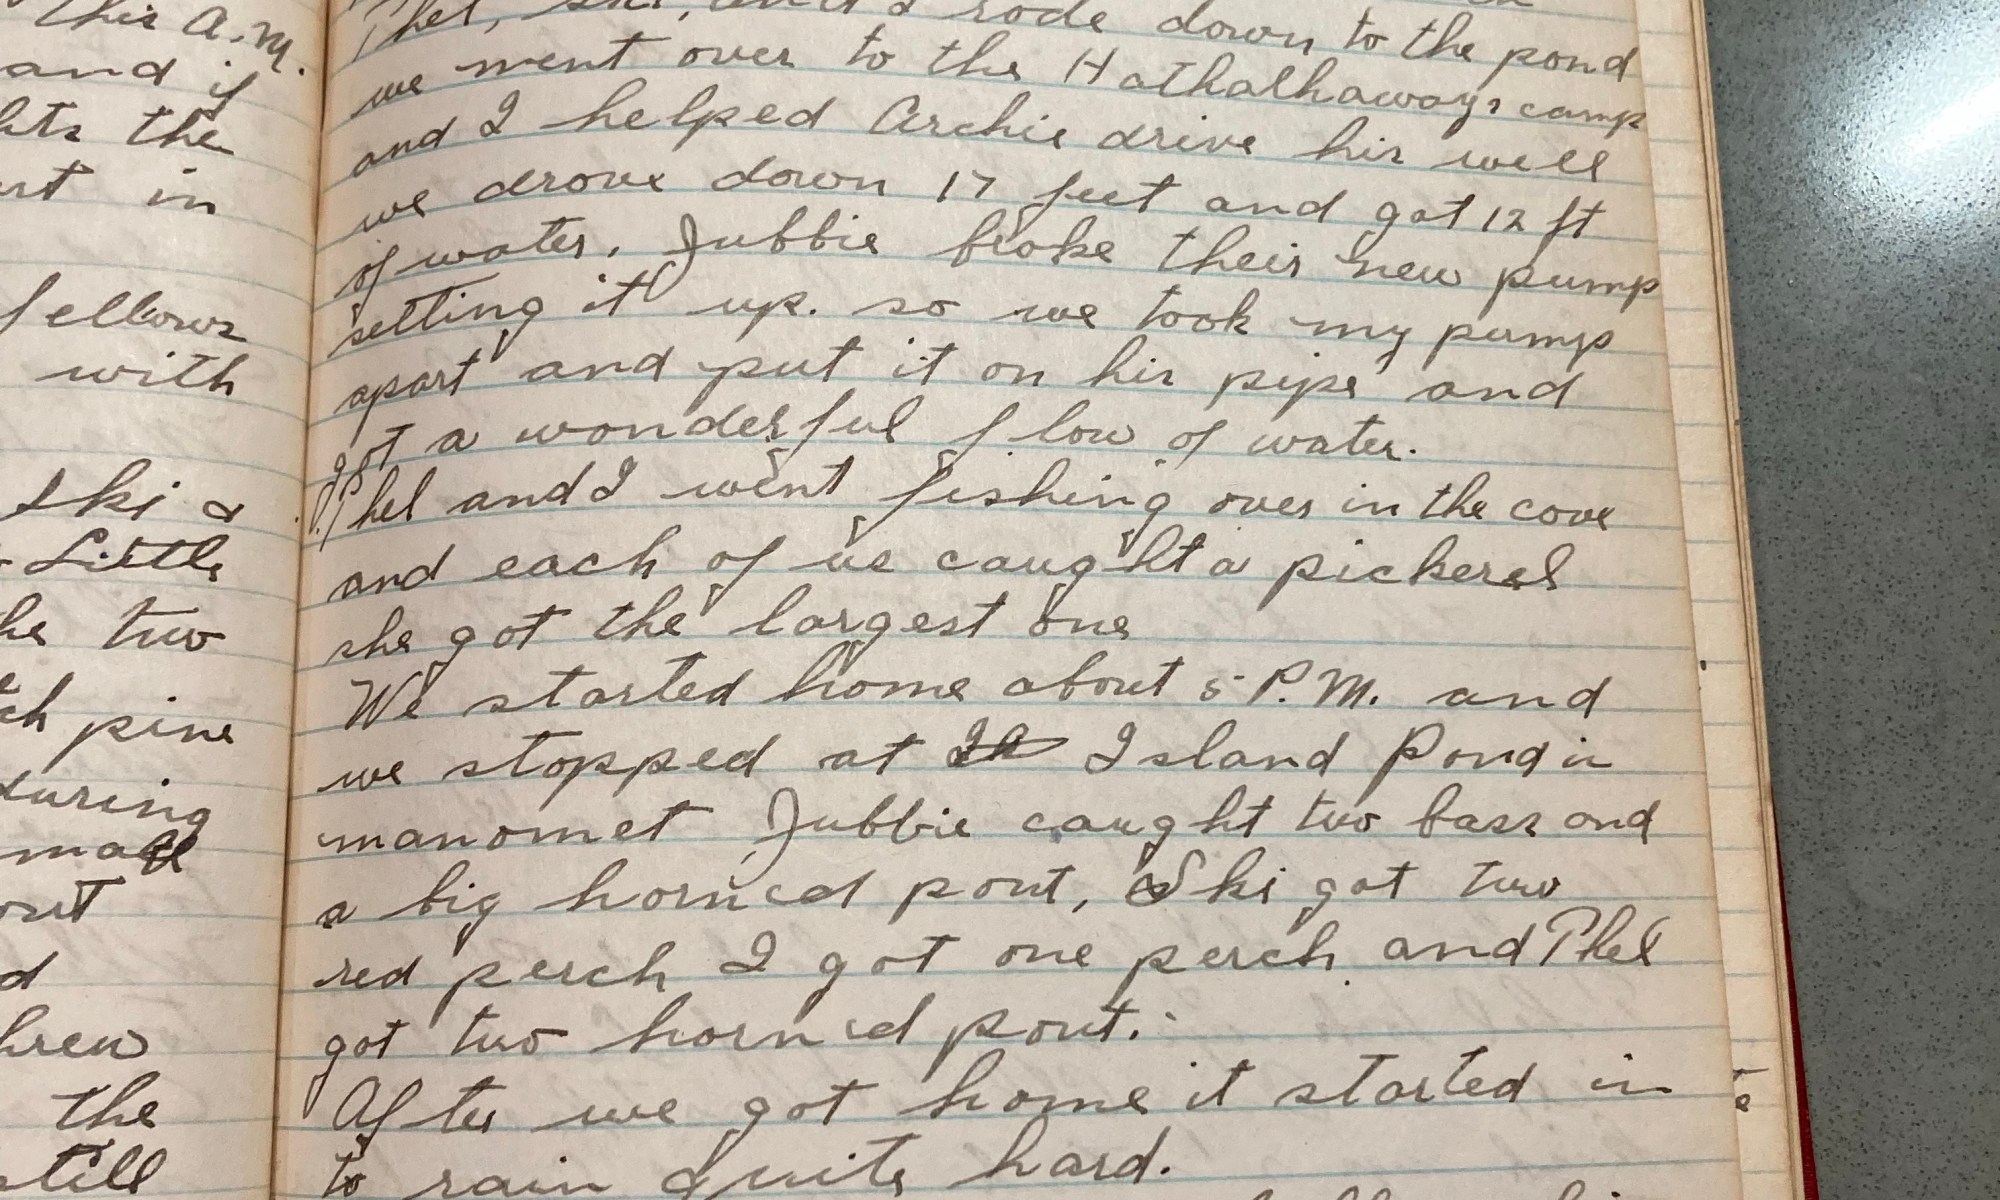 this A.M.
and if
the
in
fellows
with
Ski &
Little
two
pine
during
out
the
still
Phel, Ski, and I rode down to the pond
we went over to the Hathalhaways camp
and I helped Archie drive his well
we drove down 17 feet and got 12 ft
of water. Jubbie broke their new pump
setting it up. so we took my pump
apart and put it on his pipe and
got a wonderful flow of water.
Phel and I went fishing over in the cove
and each of us caught a pickerel
she got the largest one
We started home about 5 P.M. and
we stopped at Island Pond in
manomet Jubbie caught two bass and
a big horned pout, Ski got two
red perch I got one perch and Phel
got two horned pout.
After we got home it started in
to rain quite hard.